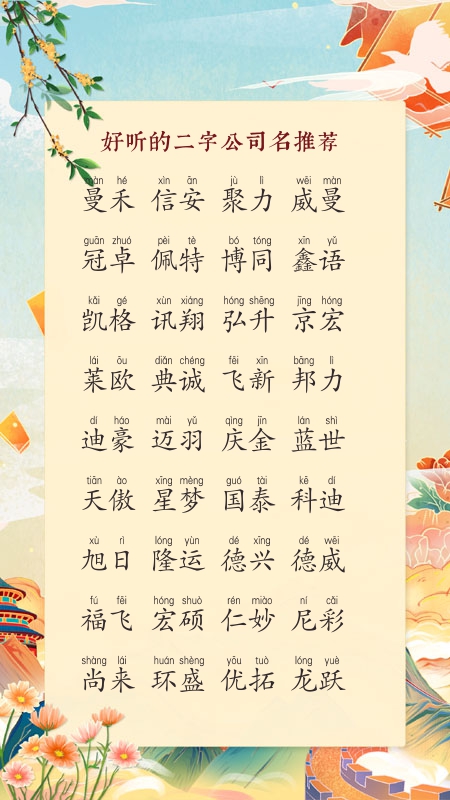 好听的二字公司名推荐
màn hé xìn ān jù lì wēi màn
曼禾 信安 聚力 威曼
guān zhuó pèi tè bó tóng xīn yǔ
冠卓 佩特 博同 鑫语
kǎi gé xùn xiáng hóng shēng jīng hóng
凯格 讯翔 弘升 京宏
lái ōu diǎn chéng fēi xīn bāng lì
莱欧 典诚 飞新 邦力
dí háo mài yǔ qìng jīn lán shì
迪豪 迈羽 庆金 蓝世
tiān ào xīng mèng guó tài kē dí
天傲 星梦 国泰 科迪
xù rì lóng yùn dé xīng dé wēi
旭日 隆运 德兴 德威
fú fēi hóng shuò rén miào ní cǎi
福飞 宏硕 仁妙 尼彩
shàng lái huán shèng yōu tuò lóng yuè
尚来 环盛 优拓 龙跃